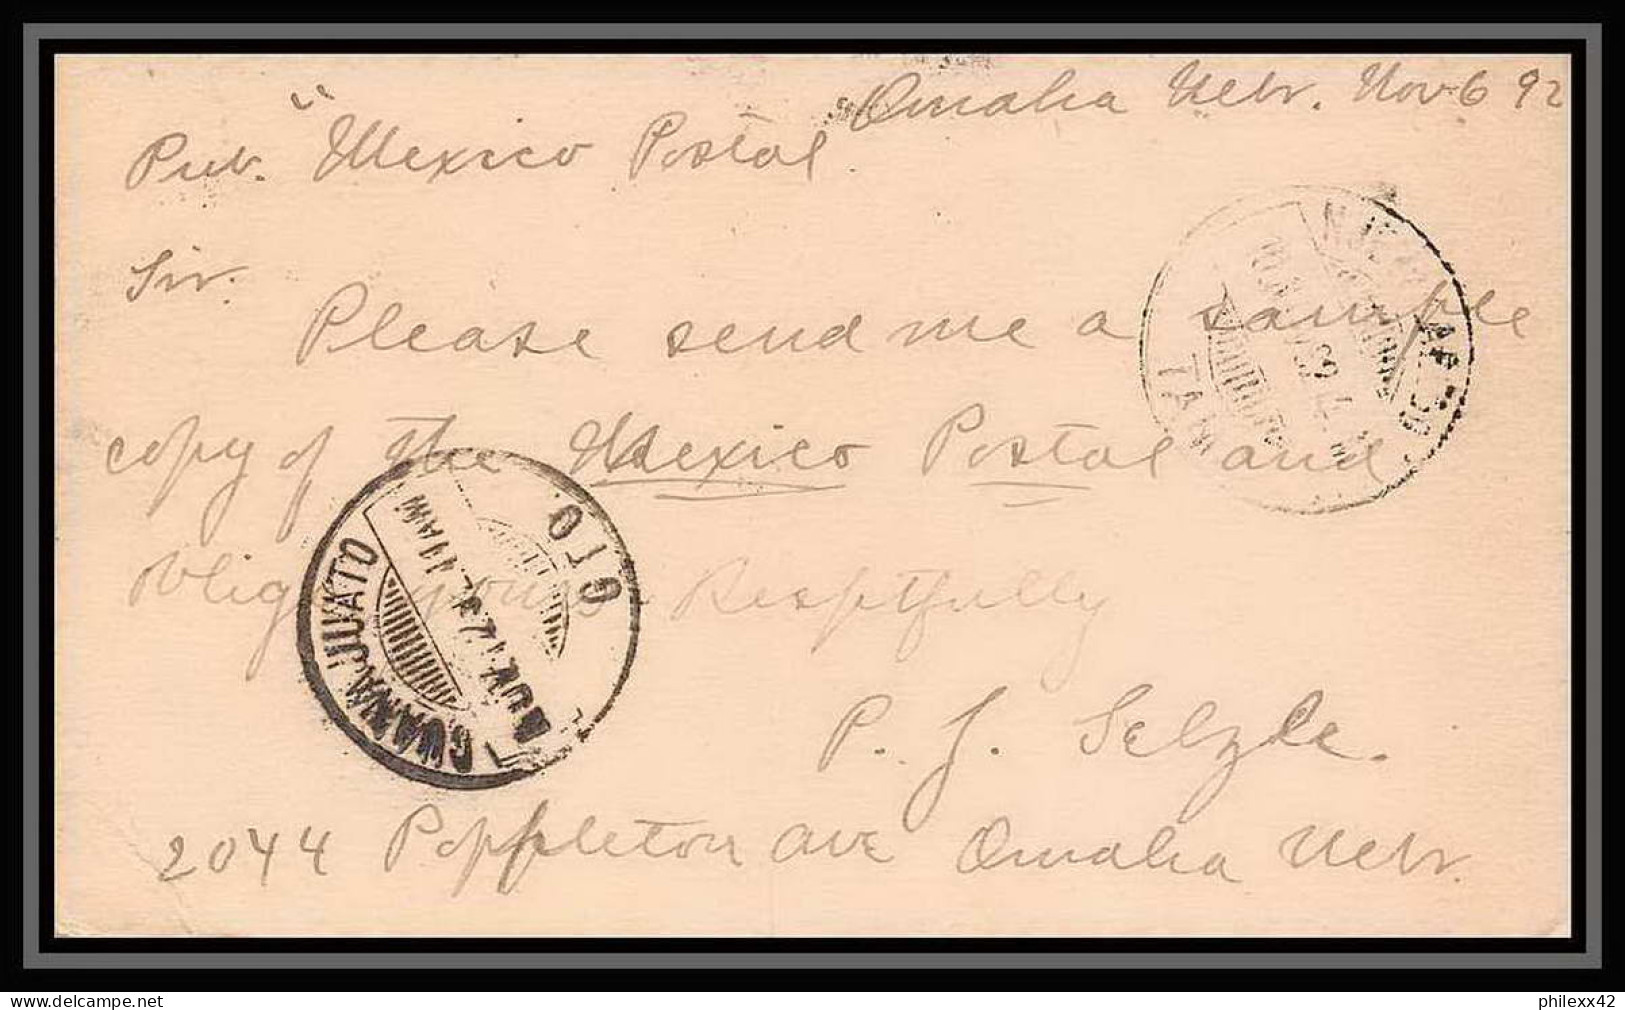 Omaha Nebr. Nov 6 92
Pub. "Mexico Postal.
Sir.
Please send me a sample
copy of the Mexico Postal and
oblige yours Resptfully
P. J. Selzle.
2044 Poppleton ave Omaha Nebr.
GUANAJUATO
GTO.
11 AM
TAM
delcampe.net
philexx42